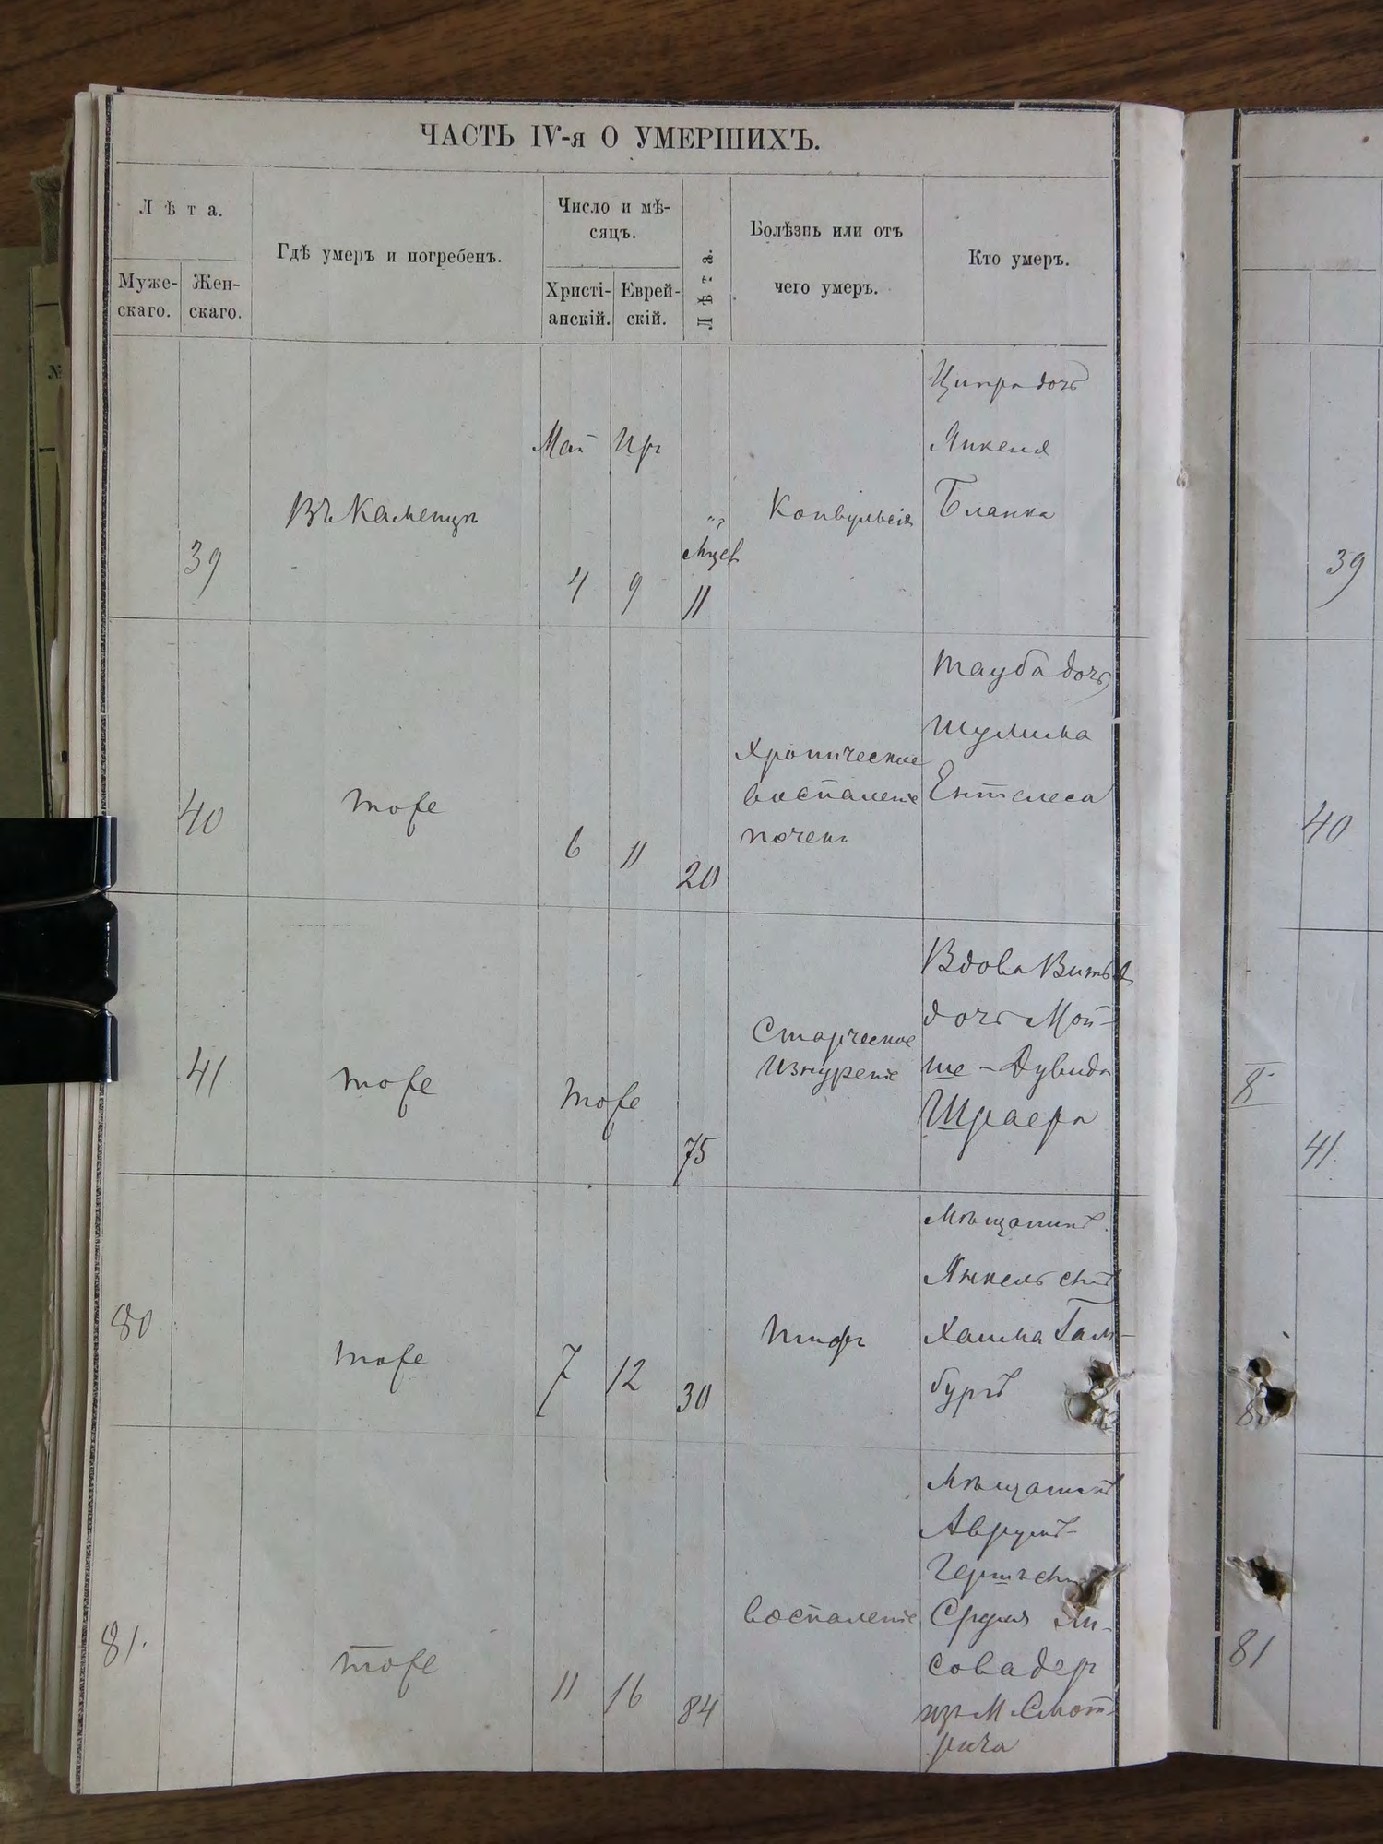 ЧАСТЬ IV-я О УМЕРШИХЪ.
Лѣта.
Муже-
скаго.
Жен-
скаго.
Гдѣ умеръ и погребенъ.
Число и мѣ-
сяцъ.
Христі-
анскій.
Еврей-
скій.
Лѣта.
Болѣзнь или отъ
чего умеръ.
Кто умеръ.
39
Въ Каменцѣ
Май
4
Ир
9
Мцев
11
Конвульсія
Ципра дочь
Янкеля
Бланка
40
тоже
6
11
20
Хроническое
воспаленіе
печени
Тауба дочь
Шулима
41
тоже
тоже
75
Старческое
изнуреніе
Вдова
дочь Мой-
ше-Дувида
Шраера
80
тоже
7
12
30
Тифъ
Мѣщанинъ
Янкель сынъ
Хаима Гам-
бургъ
81.
тоже
11
16
84
воспаленіе
Мѣщанинъ
Аврумъ-
Гершъ сынъ
Сруля
совадеръ
изъ М. Смот-
рича
39
40
8
41.
81